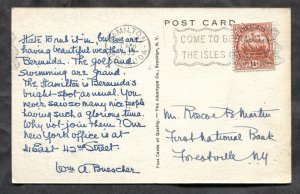 POST CARD
HAMILTON
BERMUDA
COME TO BER
THE ISLES
Hate to rub it in, but we are
having beautiful weather in
Bermuda. The golf and
swimming are grand.
The Hamilton is Bermuda's
bright spot as usual. You
never saw so many nice people
having such a glorious time.
Why not join them? Our
New York office is at
41 East 42nd Street.
Wm A. Buescher
Mr. Roscoe B Martin
First National Bank
Forestville
N.Y.